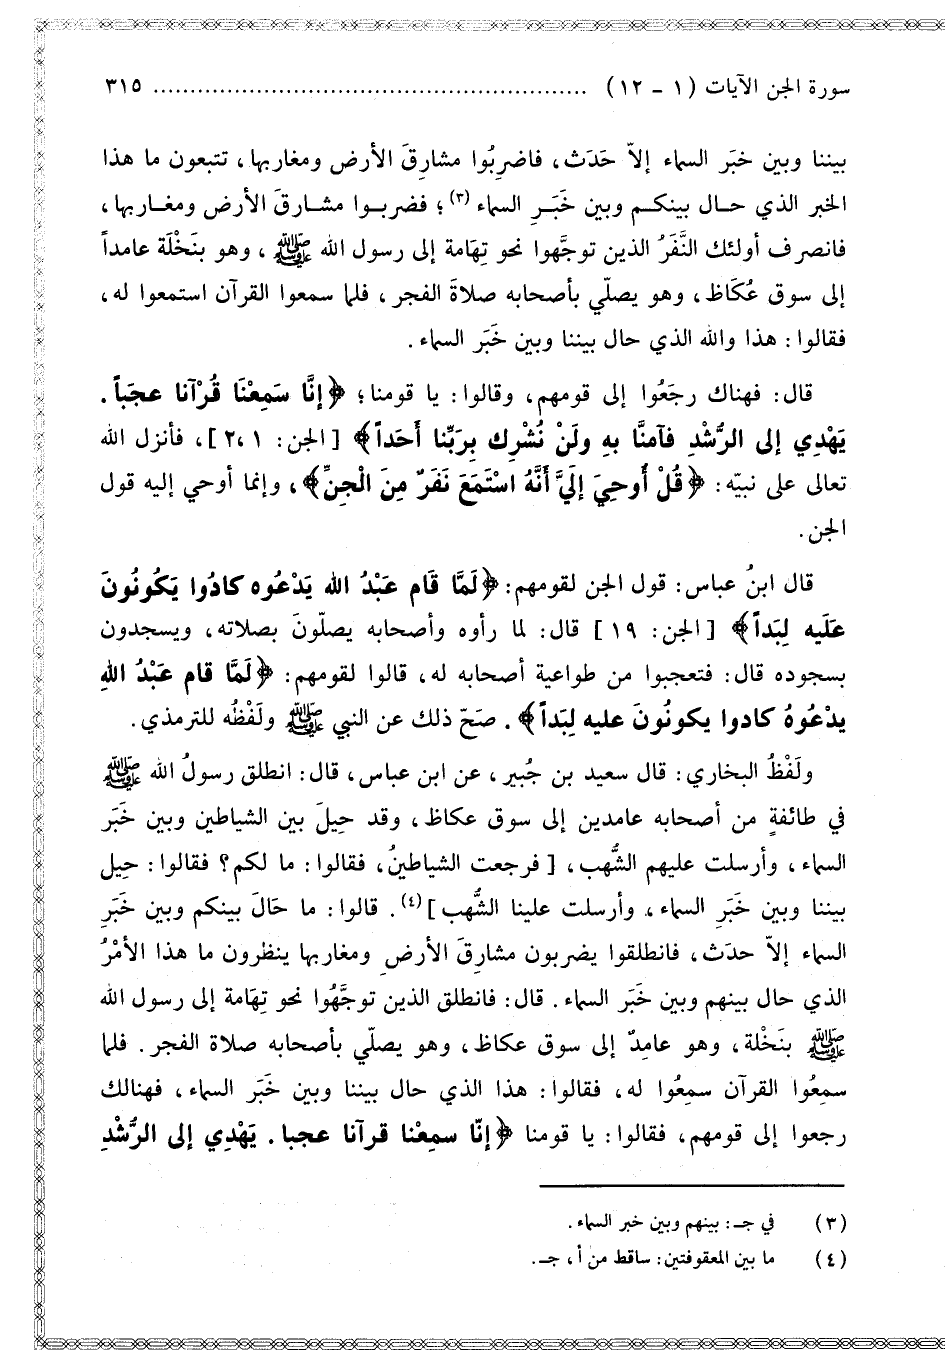 سورة الجن الآيات (١ - ١٢) ........................................................ ٣١٥
بيننا وبين خبَر السماء إلاّ حَدَث، فاضرِبُوا مشارِقَ الأرض ومغاربها، تتبعون ما هذا
الخبر الذي حـال بينكـم وبين خَبَـرِ السماء (٣)؛ فضربـوا مشـارقَ الأرض ومغـاربها،
فانصرف أولئك النَّفَرُ الذين توجَّهوا نحو تِهَامة إلى رسول الله ﷺ، وهو بنَخْلَة عامداً
إلى سوق عُكَاظ، وهو يصلّي بأصحابه صلاةَ الفجر، فلما سمعوا القرآن استمعوا له،
فقالوا: هذا والله الذي حال بيننا وبين خَبَر السماء.
قال: فهناك رجَعُوا إلى قومهم، وقالوا: يا قومنا؛ ﴿إنَّا سَمِعْنَا قُرْآنا عجَباً.
يَهْدِي إلى الرُّشْدِ فآمنَّا بهِ ولَنْ نُشْرِك بِرَبِّنا أَحَداً﴾ [الجن: ١، ٢]، فأنزل الله
تعالى على نبيّه: ﴿قُلْ أُوحِيَ إلَيَّ أَنَّهُ اسْتَمَعَ نَفَرٌ مِنَ الْجِنِّ﴾، وإنما أوحي إليه قول
الجن.
قال ابنُ عباس: قول الجن لقومهم: ﴿لَمَّا قَام عبْدُ الله يَدْعُوه كادُوا يَكُونُونَ
عَلَيه لِبَداً﴾ [الجن: ١٩] قال: لما رأوه وأصحابه يصلّونَ بصلاته، ويسجدون
بسجوده قال: فتعجبوا من طواعية أصحابه له، قالوا لقومهم: ﴿لَمَّا قام عَبْدُ اللهِ
يدْعُوهُ كادوا يكونُونَ عليه لِبَداً﴾. صَحّ ذلك عن النبي ﷺ ولَفْظُه للترمذي.
ولَفْظُ البخاري: قال سعيد بن جُبير، عن ابن عباس، قال: انطلق رسولُ الله ﷺ
في طائفةٍ من أصحابه عامدين إلى سوق عكاظ، وقد حِيلَ بين الشياطين وبين خَبَر
السماء، وأرسلت عليهم الشُّهب، [فرجعت الشياطينُ، فقالوا: ما لكم؟ فقالوا: حِيل
بيننا وبين خَبَرِ السماء، وأرسلت علينا الشُّهب](٤). قالوا: ما حَالَ بينكم وبين خَبَرِ
السماء إلاّ حدَث، فانطلقوا يضربون مشارِقَ الأرضِ ومغاربها ينظرون ما هذا الأمْرُ
الذي حال بينهم وبين خَبَر السماء. قال: فانطلق الذين توجَّهُوا نحو تِهَامة إلى رسول الله
ﷺ بنَخْلة، وهو عامِدٌ إلى سوق عكاظ، وهو يصلّي بأصحابه صلاة الفجر. فلما
سمعُوا القرآن سمِعُوا له، فقالوا: هذا الذي حال بيننا وبين خَبَر السماء، فهنالك
رجعوا إلى قومهم، فقالوا: يا قومنا ﴿إنّا سمِعْنا قرآنا عجبا. يَهْدِي إلى الرُّشْدِ
(٣) في جـ: بينهم وبين خبر السماء.
(٤) ما بين المعقوفتين: ساقط من أ، جـ.